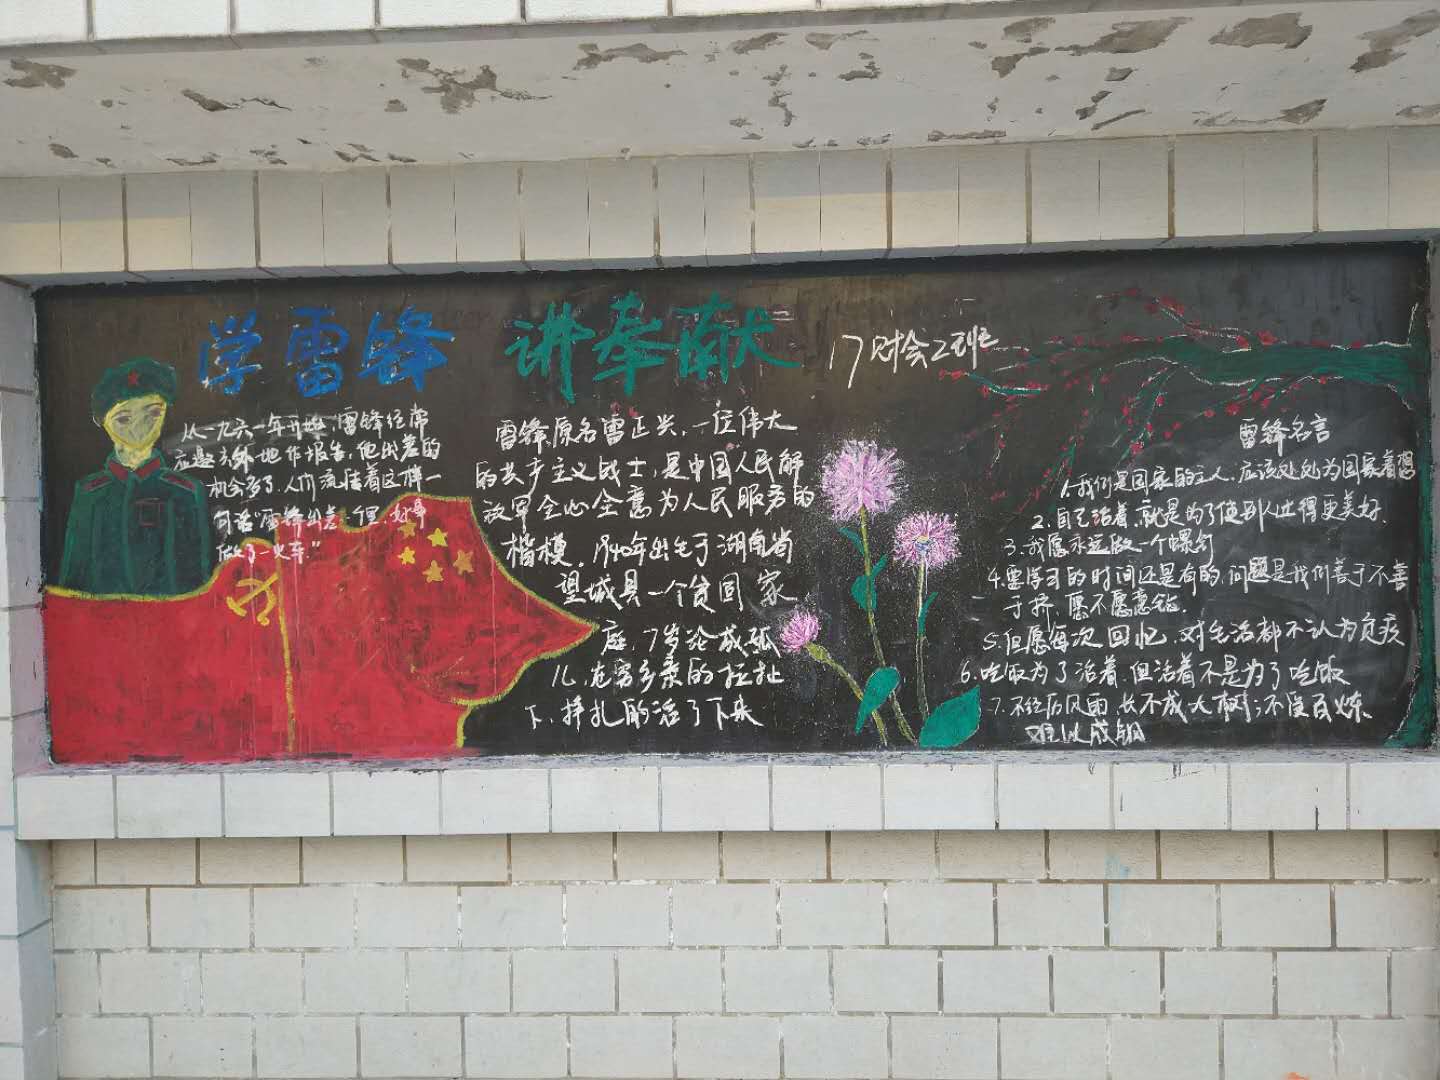 学雷锋 讲奉献
17财会2班
从一九六一年开始,雷锋经常
应邀去外地作报告,他出差的
机会多了,人们流传着这样一
句话"雷锋出差一千里,好事
做了一火车."
雷锋,原名雷正兴,一位伟大
的共产主义战士,是中国人民解
放军全心全意为人民服务的
楷模,1940年出生于湖南省
望城县一个贫困家
庭,7岁沦成孤
儿,在穷乡亲的拉扯
下,挣扎的活了下来
雷锋名言
1.我们是国家的主人,应该处处为国家着想
2.自己活着,就是为了使别人过得更美好.
3.我愿永远做一个螺钉
4.要学习的时间还是有的,问题是我们善于不善
于挤,愿不愿意钻.
5.但愿每次回忆,对生活都不认为负疚
6.吃饭为了活着,但活着不是为了吃饭
7.不经历风雨,长不成大树;不受百炼,
难以成钢